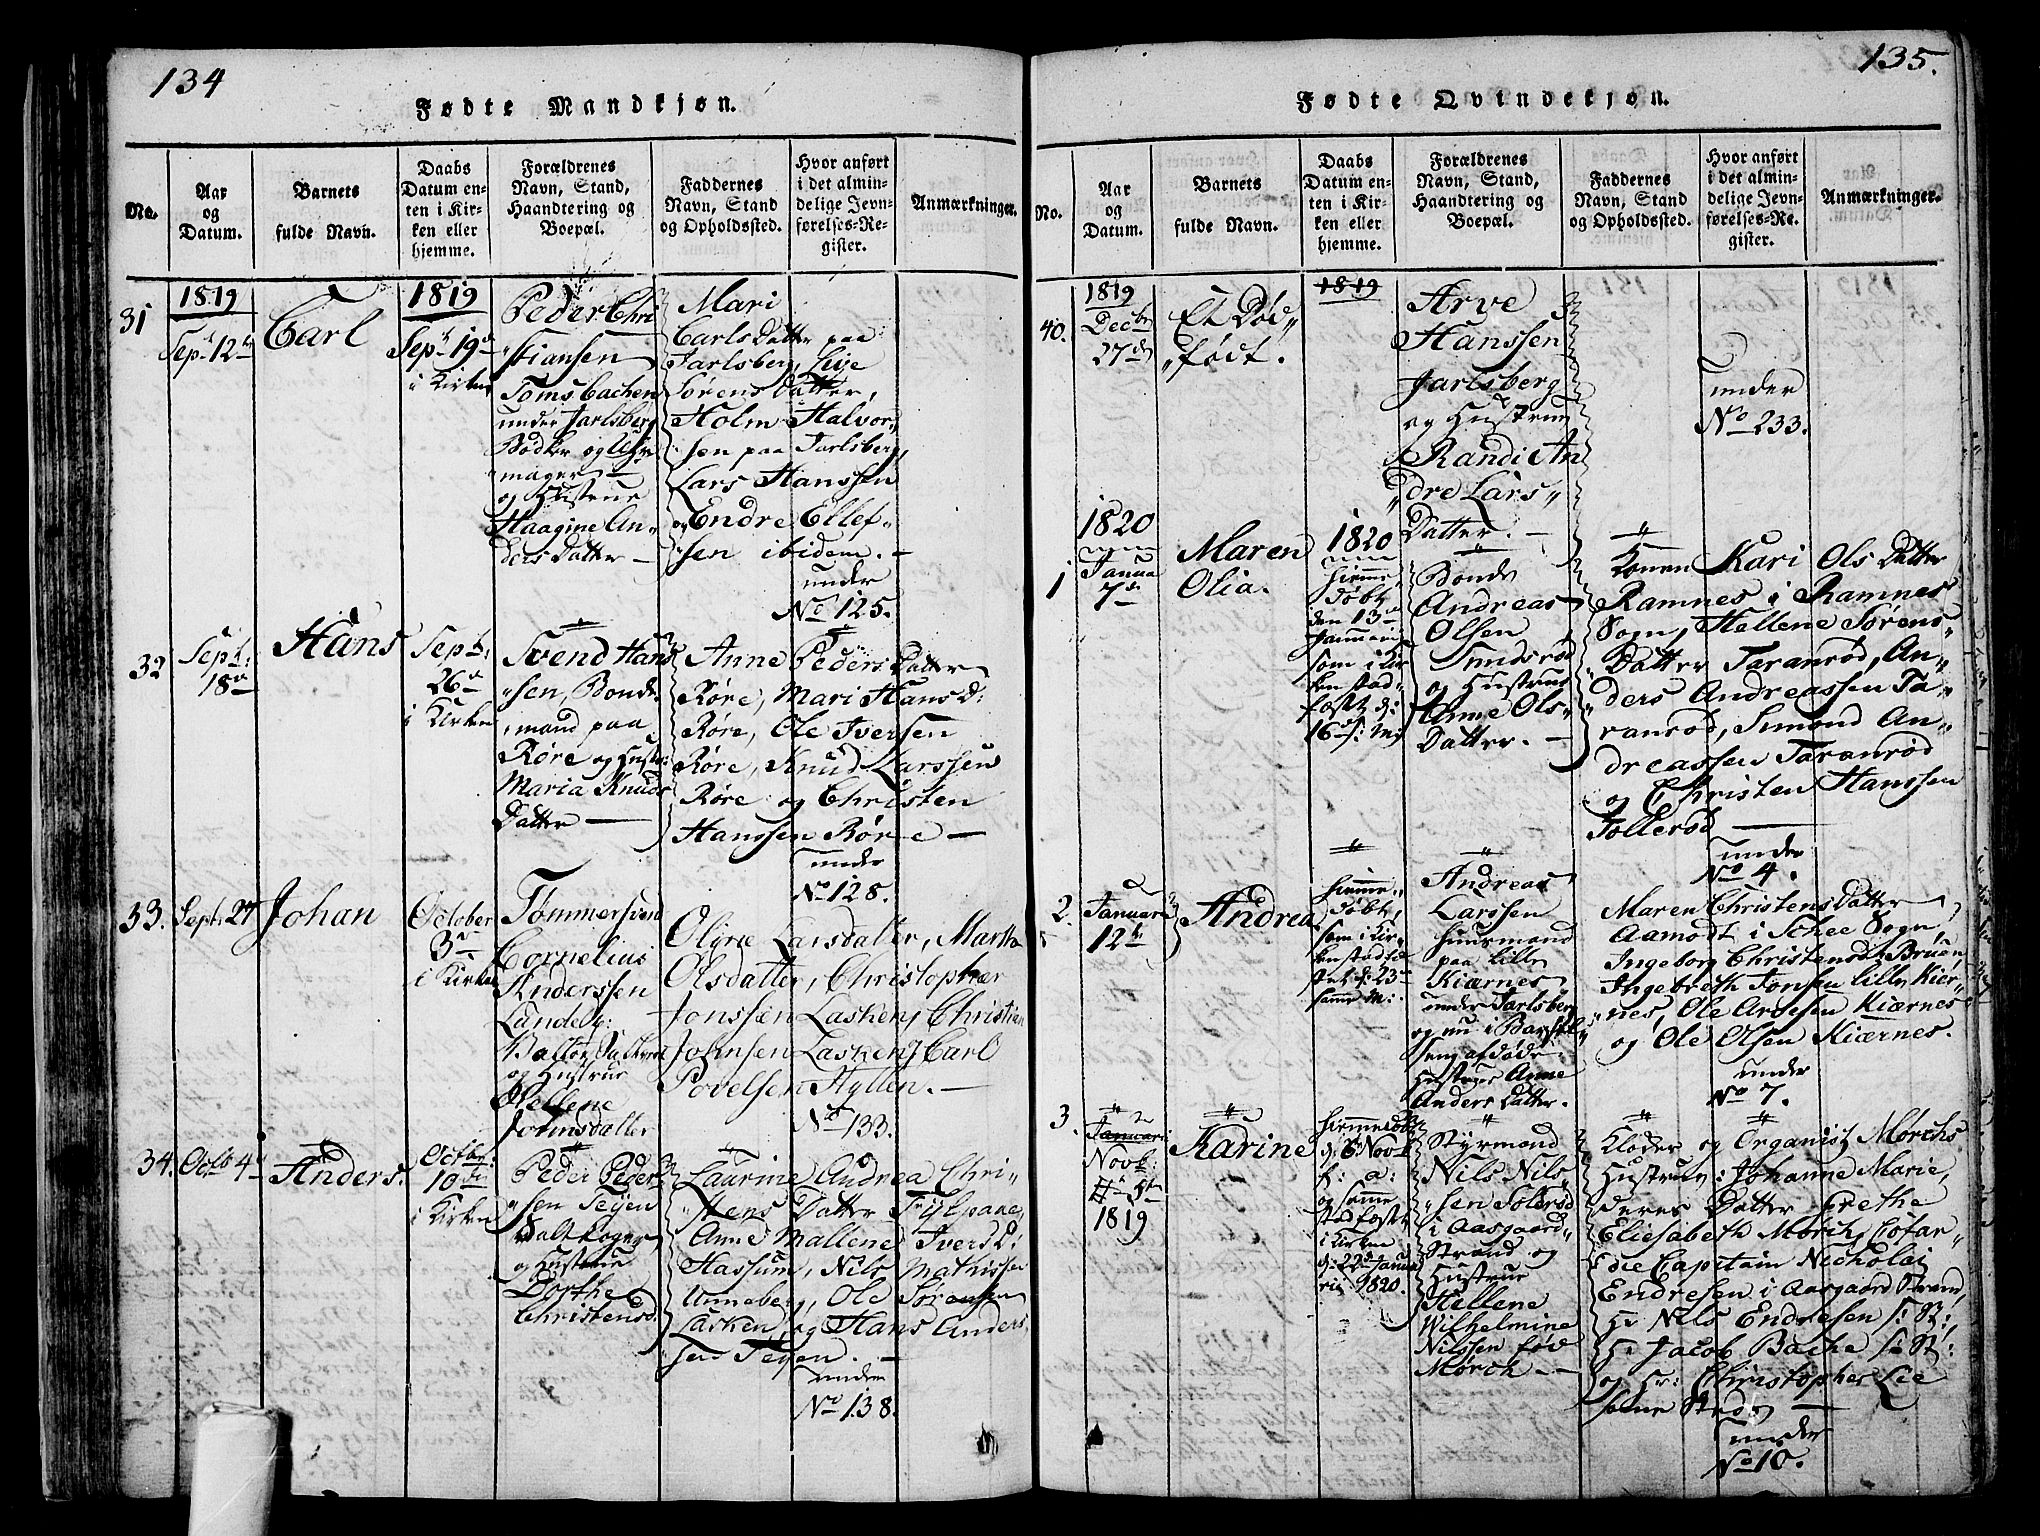 134
Fødte Mandkjøn.
No.
Aar
og
Datum.
Barnets
fulde Navn.
Daabs
Datum en-
ten i Kir-
ken eller
hjemme.
Forældrenes
Navn, Stand,
Haandtering og
Boepæl.
Faddernes
Navn, Stand
og Opholdssted.
Hvor anført
i det almin-
delige Jevn-
førelses-Re-
gister.
Anmærkninger.
31
1819
Sept 12te
Carl
1819
Sept 19de
i Kirken
Peder Chri
"stiansen
Tomsbachen
under Jarlsberg
Bødker og
mager
og Hustrue
Haagine An"
ders Datter
Mari
Carls Datter paa
Jarlsberg, Lize
Sørens Datter,
Holm Halvor"
sen paa Jarlsberg,
Lars Hanssen
Endre Ellef"
"sen ibidem.
under
No 125.
32
Sept:
18de
Hans
Septb:
26de
i Kirken
Svend Hans
"sen, Bonde
mand paa
Røre og Hustr:
Maria Knuds
Datter
Anne Peders Datter
Røre, Mari Hans D:
Røre, Ole Iversen
Røre, Knud Larssen
Røre og Christen
Hanssen Røre
under
No 128.
33.
Sept: 27
Johan
October
3de
i Kirken
Tømmersvend
Cornelius
Anderssen
og Hustrue
Hellene
Johnsdatter
Olyne Larsdatter, Martha
Olsdatter, Christopher
Jonssen Lasken, Christian
Johnsen Lasken, Carl
Povelsen Hyllen.
No 133.
34.
Octb 4de
Anders.
Octbr:
10de
i Kirken
Peder Peder
"sen Teyen
Saltkoger
og Hustrue
Dorthe
Christensd.
Laurine Andrea Chri"
"stens Datter Fyllpane,
Anne Mallene Ivers D:
Hassum, Nils Mathissen
Unneberg, Ole Sørensen
Lasken, og Hans Anders
sen Teyen.
under
No 138.
135.
Fødte Qvindekjøn.
No.
Aar
og
Datum.
Barnets
fulde Navn.
Daabs
Datum en-
ten i Kir-
ken eller
hjemme.
Forældrenes
Navn, Stand,
Haandtering og
Boepæl.
Faddernes
Navn, Stand
og Opholdssted.
Hvor anført
i det almin-
delige Jevn-
førelses-Re-
gister.
Anmærkninger.
40.
1819
Decbr
27de
Et Død"
"født.
1819
Arve
Hanssen
Jarlsberg
og Hustrue
Randi An
"dre Lars"
Datter.
under
No 233.
1
1820
Janua
7de
Maren
Olia.
1820
hiemme
døbt
den 13de
som i Kir
ken stad"
fæst d:
16
Bonde
Andreas
Olsen
Sundsrød
og Hustrue
Anne Ols"
Datter.
Konen Kari Ols Datter
Ramnes i Ramnes
Sogn, Hellene Sørens"
Datter Taranrød, An"
ders Andreassen Ta"
ranrød, Simond An"
dreassen Taranrød
og Christen Hanssen
Tollerød
under
No 4.
2.
Januari
12te
Andrea
hiemme"
døbt,
som i Kir"
ken stadfæ
stet d: 23de
samme M:
Andreas
Larssen
Huusmand
paa lille
Kiærnes
under Jarlsberg
og nu i Barsel"
seng afdøde
Hustrue Anne
Anders Datter.
Maren Christens Datter
Aamodt i Schee Sogn,
Ingeborg Christensd: Bruen
Ingebreth Jonsen lille Kier"
"nes, Ole Arnesen Kiærnes
og Ole Olsen Kiærnes.
under
No 7.
3.
Januari
Novb:
5te
1819
Karine
hiemmedøbt
d: 6 Novb
f: a:
og samme
stadfæstet
i Kirken
d: 22de Janua
rii 1820.
Styrmand
Nils Nils"
"sen Solerød
i Aasgaard"
Strand og
Hustrue
Hellene
Wilhelmine
Nilssen fød
Mørck
Kloker og Organist Mørchs
Hustrue: Johanne Marie,
deres Datter Grethe
Eliesabeth Mørch, Cofar"
die Capitain Nicholai
Endresen i Aasgaard Strand,
Hr Nils Endresen s: St:,
Hr Jacob Bache s: St:
og Hr: Christopher Lie
samme Sted
under
No 10.